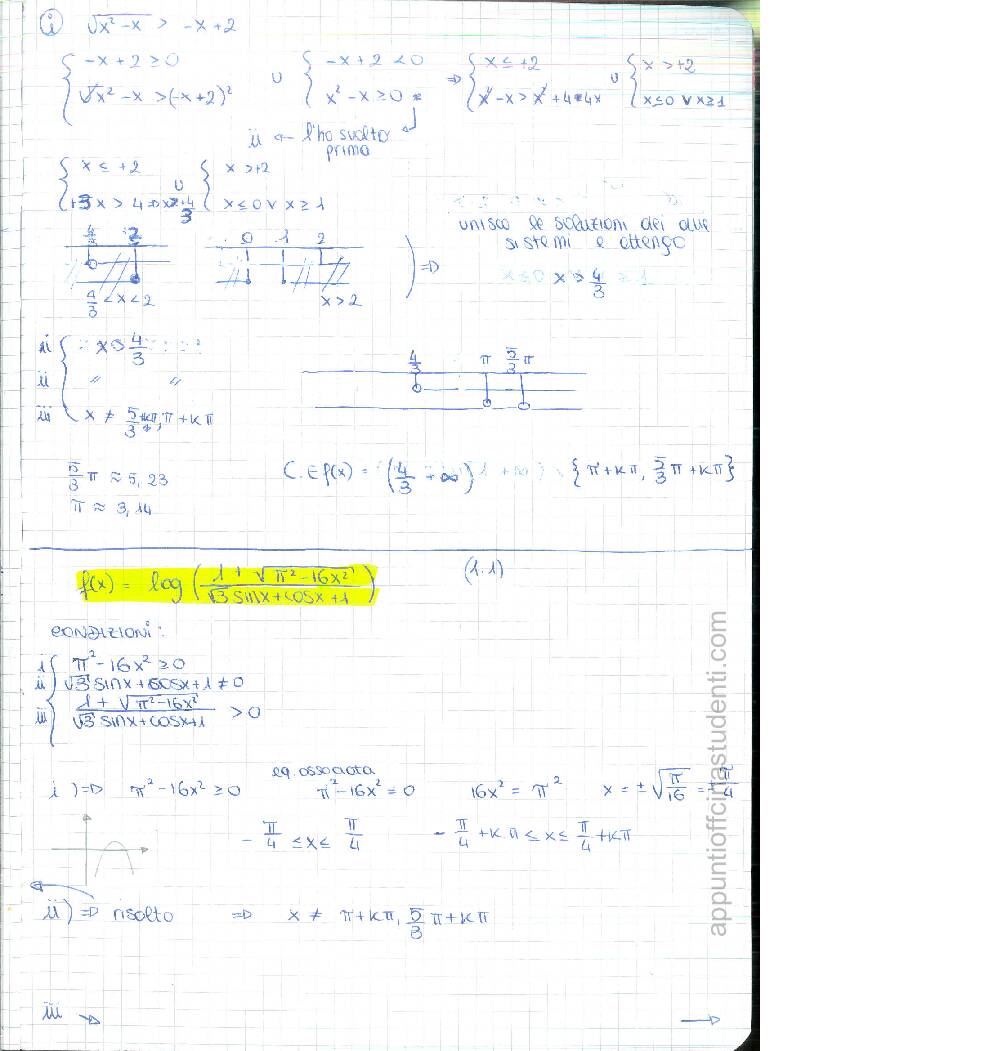 i √x²-x > -x+2
{ -x+2 ≥ 0 ∪ { -x+2 < 0 => { x ≤ +2 ∪ { x > +2
√x²-x > (-x+2)² x²-x ≥ 0 x²-x > x²+4-4x x≤0 ∨ x≥1
ii ← l'ho svolto
prima
{ x ≤ +2 ∪ { x > +2
+3x > 4 => x > +4/3 x≤0 ∨ x≥1
unisco le soluzioni dei due
sistemi e ottengo
4/3 2 0 1 2 ) =>
x > 4/3
4/3 < x < 2 x > 2
i { x > 4/3
ii " "
iii x ≠ 5/3 π, π+kπ
4/3 π 5/3 π
5/3 π ≈ 5,23
π ≈ 3,14
C.E f(x) = (4/3 +∞) \ {π+kπ, 5/3 π+kπ}
f(x) = log ( (1+√π²-16x²) / (√3 sinx+cosx+1) ) (1.1)
CONDIZIONI:
i { π²-16x² ≥ 0
ii √3 sinx+cosx+1 ≠ 0
iii (1+√π²-16x²) / (√3 sinx+cosx+1) > 0
eq. associata
i ) => π²-16x² ≥ 0 π²-16x² = 0 16x² = π² x = ±√π/16 = ±π/4
-π/4 ≤ x ≤ π/4 -π/4+kπ ≤ x ≤ π/4+kπ
ii ) => risolto => x ≠ π+kπ, 5/3 π+kπ
iii →
appuntioffcinastudenti.com